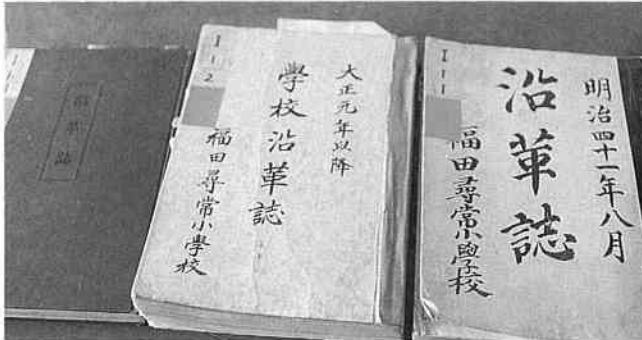 明治四十一年八月
沿革誌
福田尋常小學校
I
1
1
大正元年以降
學校沿革誌
福田尋常小學校
I
1
2
沿革誌